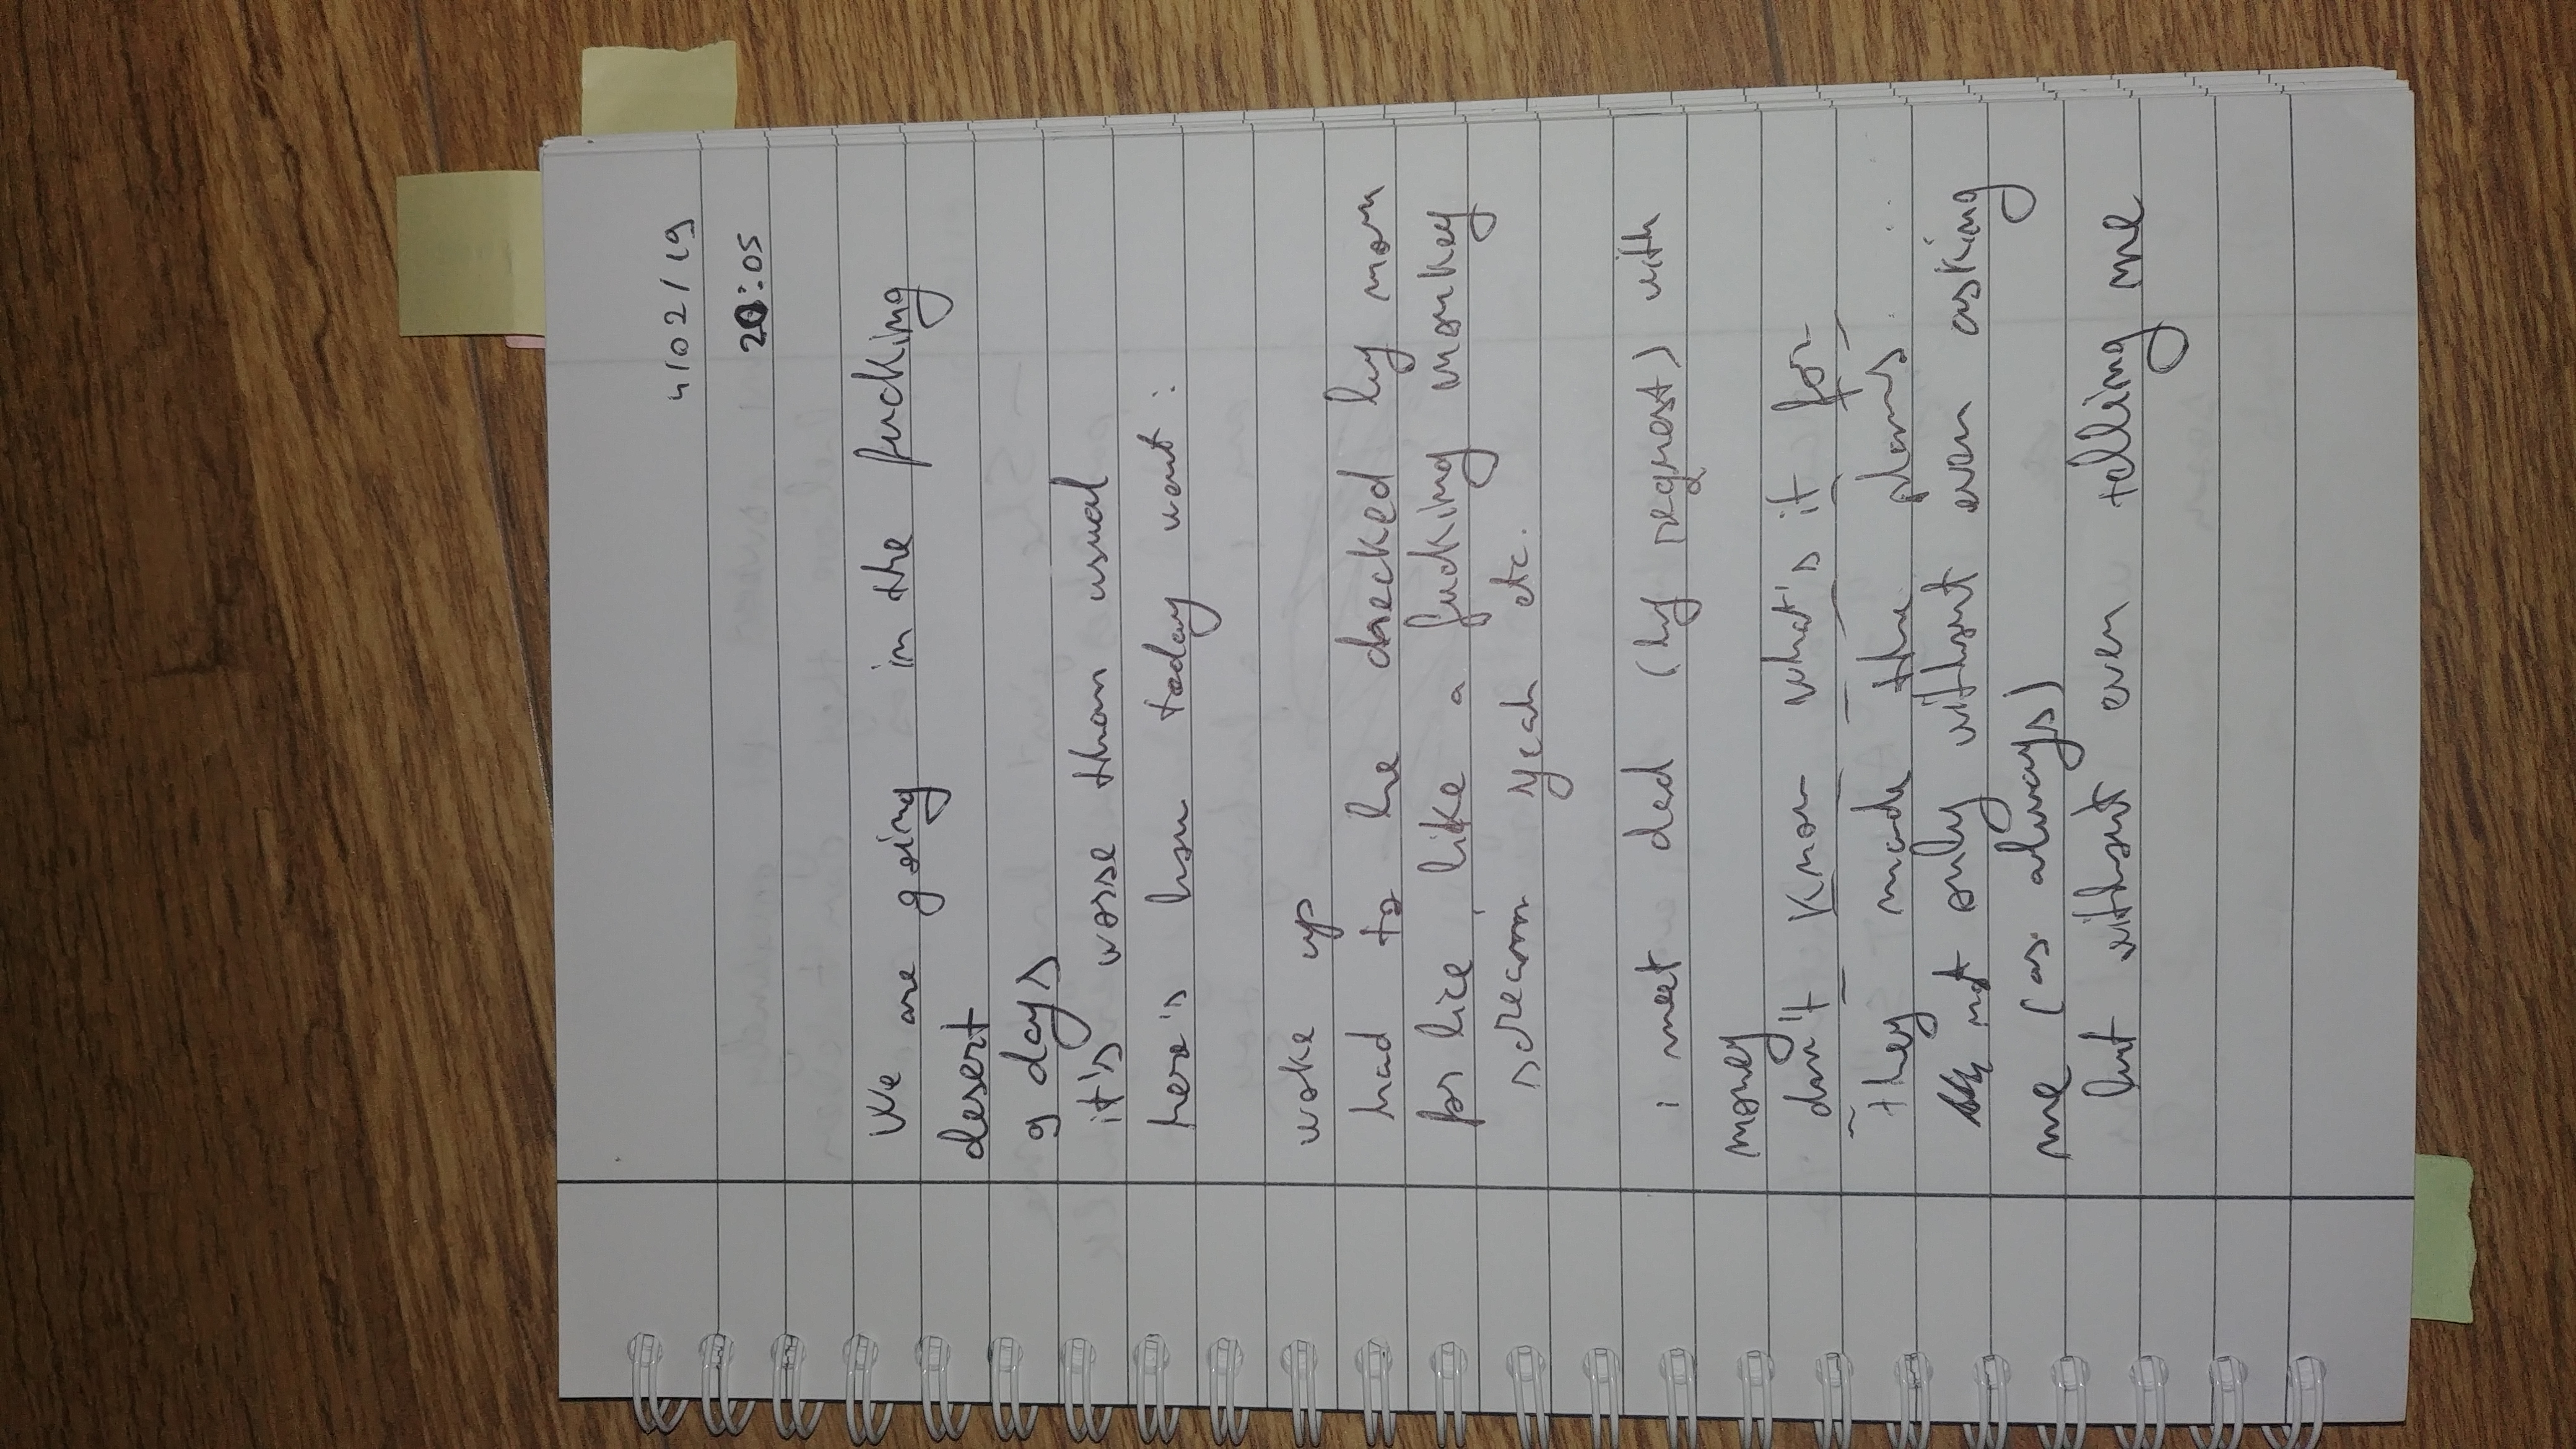 4/02/19
20:05
We are going in the fucking
desert
9 days
it's worse than usual
here's how today went:
woke up
had to be checked by mom
for lice, like a fucking monkey
scream yeah etc.
i meet dad (by request) with
money
don't know what's it for
they made the plans
not only without even asking
me (as always)
but without even telling me